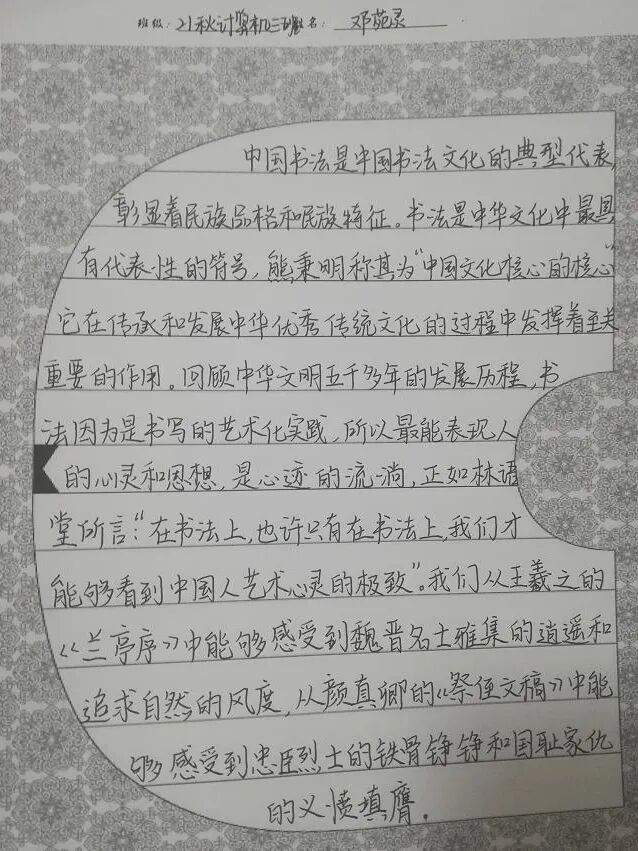 班级：21秋计算机三班姓名：邓苑灵
中国书法是中国书法文化的典型代表，
彰显着民族品格和民族特征。书法是中华文化中最具
有代表性的符号，熊秉明称其为“中国文化核心的核心”
它在传承和发展中华优秀传统文化的过程中发挥着至关
重要的作用。回顾中华文明五千多年的发展历程，书
法因为是书写的艺术化实践，所以最能表现人
的心灵和思想，是心迹的流淌，正如林语
堂所言：“在书法上，也许只有在书法上，我们才
能够看到中国人艺术心灵的极致”。我们从王羲之的
《兰亭序》中能够感受到魏晋名士雅集的逍遥和
追求自然的风度，从颜真卿的《祭侄文稿》中能
够感受到忠臣烈士的铁骨铮铮和国耻家仇
的义愤填膺．